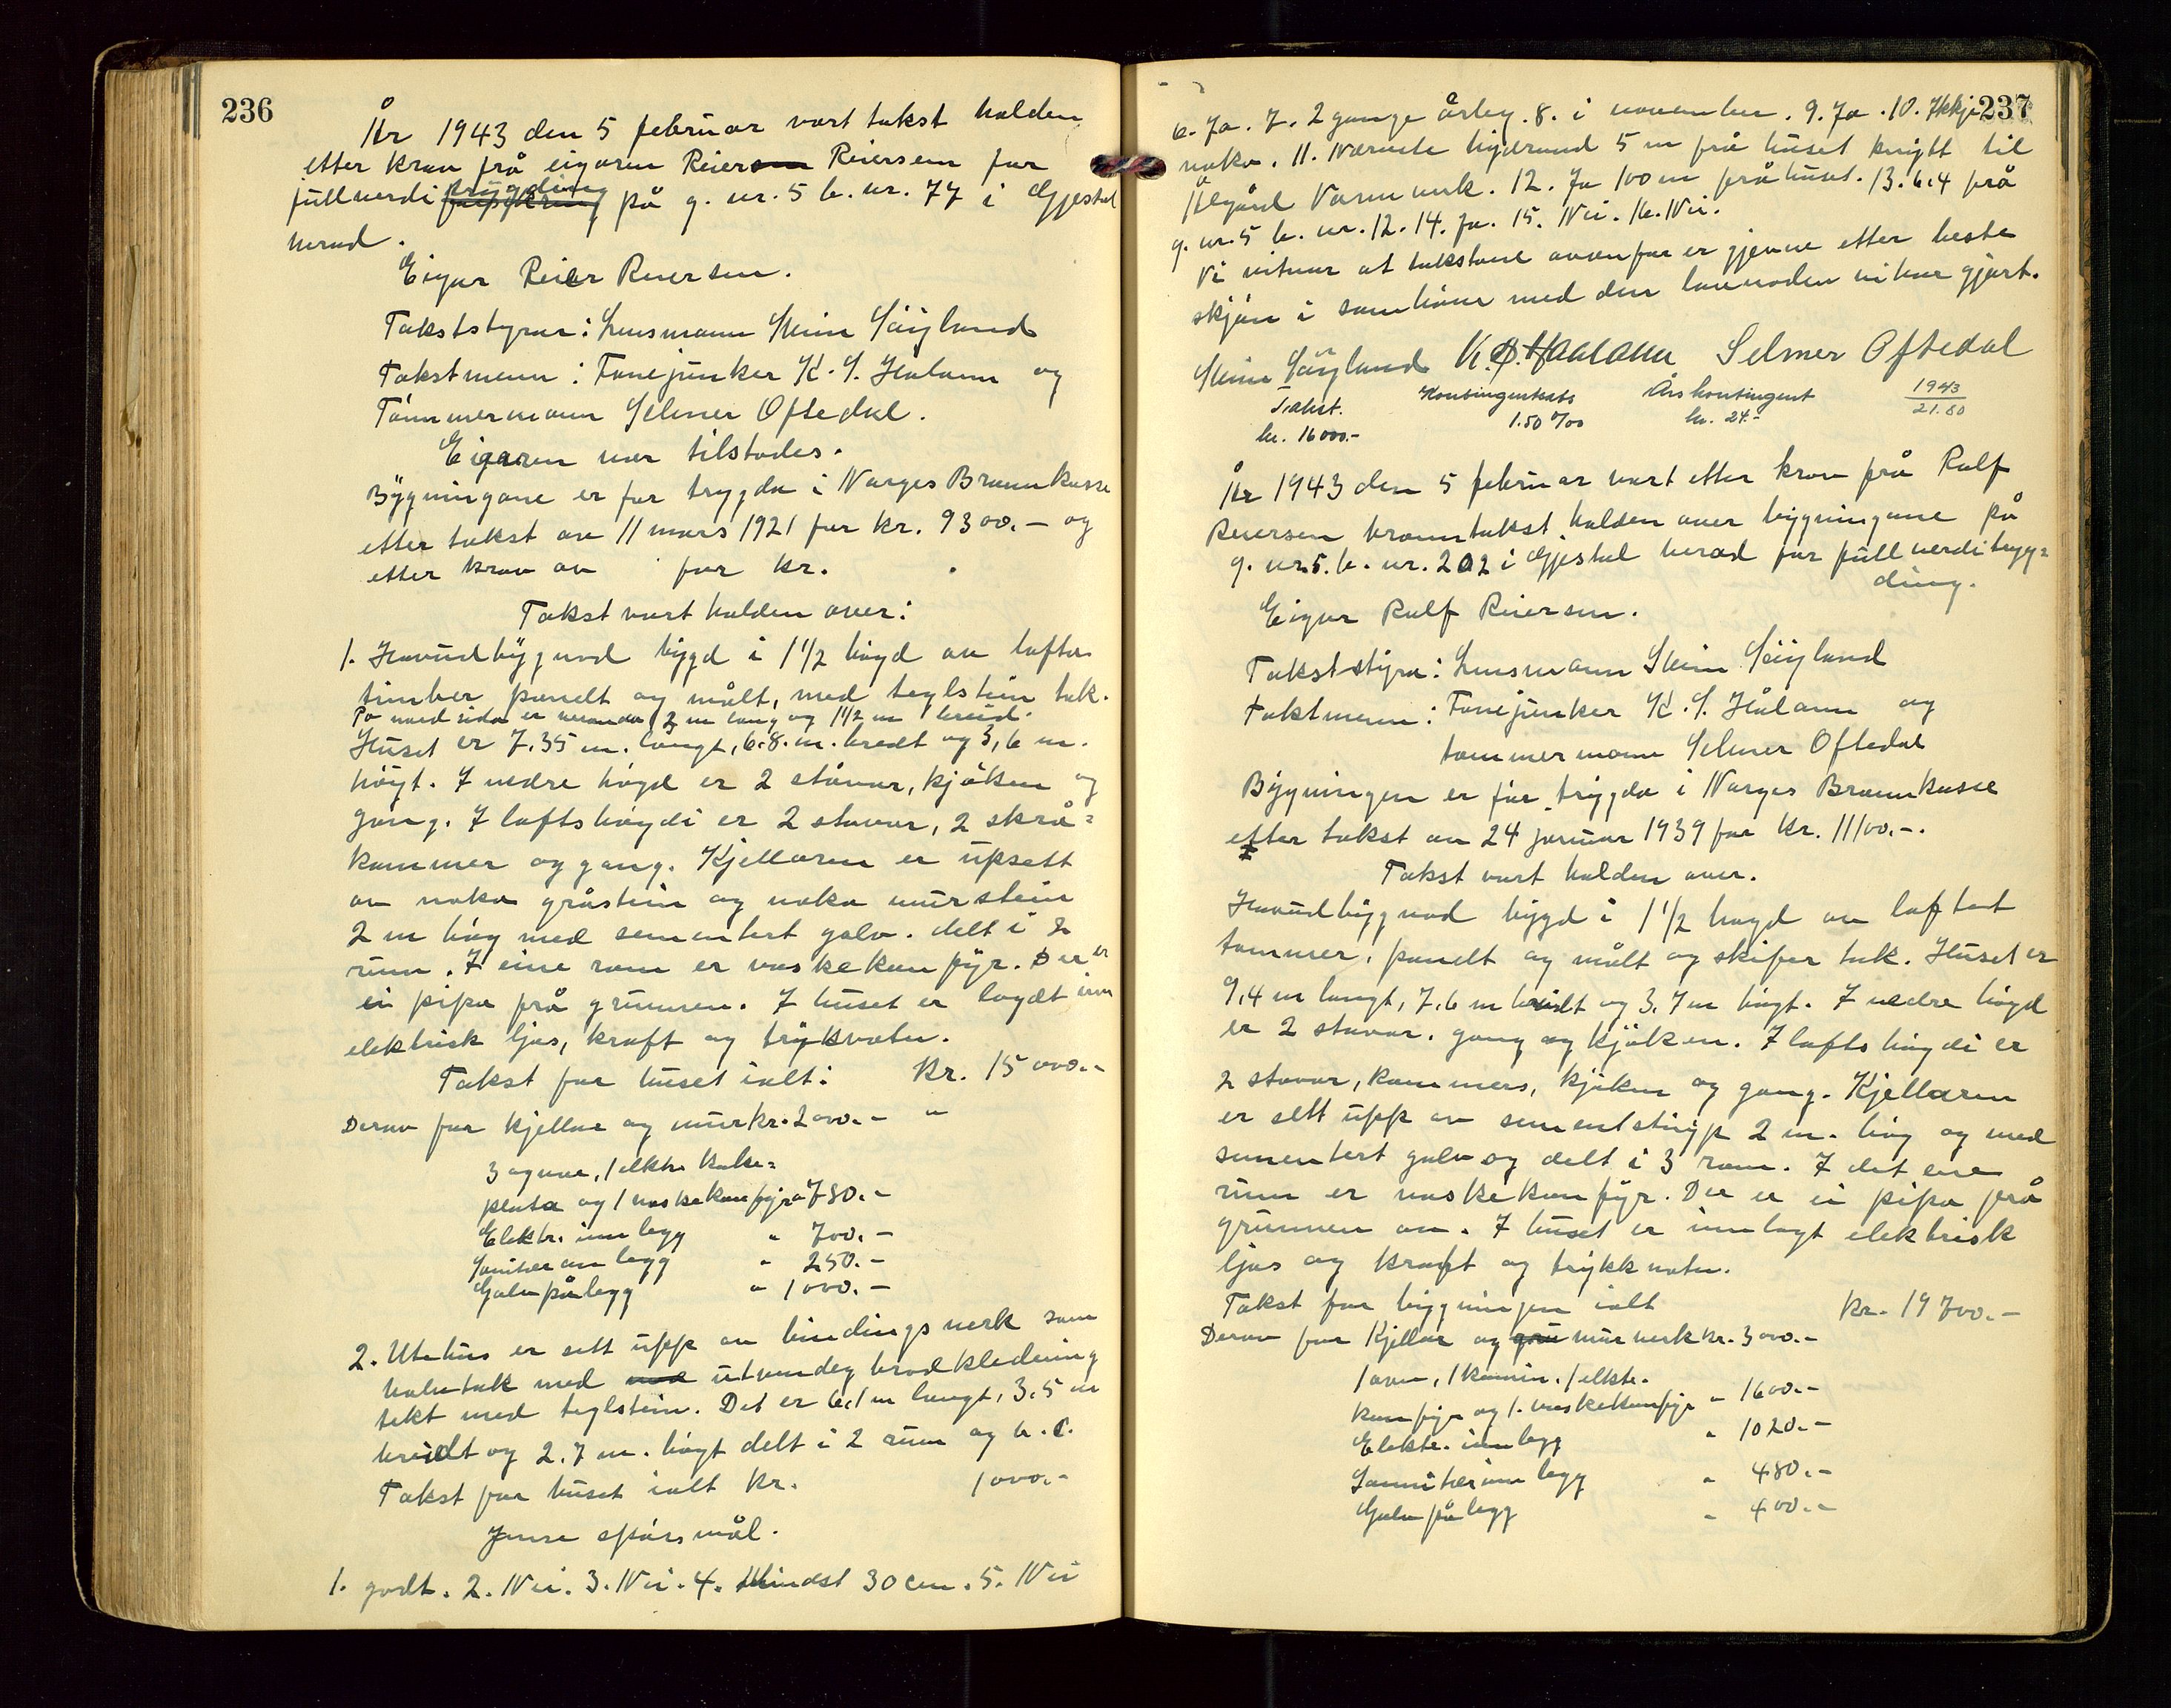 236
År 1943 den 5 februar vart takst halden
etter krav frå eigaren Reier Reiersen for
fullverdi trygding på g. nr. 5 b. nr. 77 i Gjestal
herad.
Eigar Reier Reiersen.
Takststyrar: Lensmann Stein Søyland
Takstmenn: Fanejunker K. S. Haaland og
Tømmermann Selmer Oftedal.
Eigaren var tilstades.
Bygningane er før trygda i Norges Brannkasse
etter takst av 11 mars 1921 for kr. 9300.- og
etter krav av for kr. .
Takst vart halden over:
1. Hovudbygnad bygd i 1 1/2 høgd av lafta
timber panelt og målt, med teglstein tak.
På nord sida er veranda 2 m lang og 1 1/2 m breid.
Huset er 7.35 m. langt, 6.8. m. bredt og 3,6 m.
høgt. I nedre høgd er 2 stovar, kjøken og
gang. I loftshøgdi er 2 stovar, 2 skrå=
kammer og gang. Kjellaren er upsett
av noko gråstein og noko murstein
2 m høg med sementert golv. delt i 2
rum. I eine rom er vaskekomfyr. Der er
ei pipa frå grunnen. I huset er lagdt inn
elektrisk ljos, kraft og trykvatn.
Takst for huset ialt: Kr. 15000.-
Derav for kjellar og mur kr. 2000.- "
3 ovnar, 1 elktr. koke=
plata og 1 vaskekomfyr " 780.-
Elektr. innlegg " 700.-
Sanitær innlegg " 250.-
Golvpålegg " 1000.-
2. Utehus er sett upp av bindingsverk som
halvtak med utvendig bordkledning
tekt med teglstein. Det er 6,1 m langt, 3,5 m
breidt og 2.7 m. høgt delt i 2 rum og w.c.
Takst for huset ialt kr. 1000.-
Ymse spørsmål.
1. godt. 2. Nei. 3. Nei. 4. Mindst 30 cm. 5. Nei
237
6. Ja. 7. 2 gange årleg. 8. i november. 9. Ja. 10. Ikkje
noko. 11. Næraste hydrand 5 m frå huset knytt til
Ålgård Vannverk. 12. Ja 100 m frå huset. 13. 6.4 frå
g. nr. 5 b. nr. 12. 14. Ja. 15. Nei. 16. Nei.
Vi vitnar at takstane ovanfor er gjevne etter beste
skjøn i samhøve med den lovnaden vi har gjort.
Stein Søyland K. S. Haaland Selmer Oftedal
Takst. Kontingentsats Årskontingent 1943
kr. 16000.- 1.50 o/oo kr. 24.- 21.60
År 1943 den 5 februar vart etter krav frå Rolf
Reiersen branntakst halden over bygningane på
g. nr. 5. b. nr. 202 i Gjestal herad for fullverditryg=
ding.
Eigar Rolf Reiersen.
Takststyra: Lensmann Stein Søyland
takstmenn: Fanejunker K. S. Håland og
tømmermann Selmer Oftedal
Bygningen er før trygda i Norges Brannkasse
etter takst av 24 januar 1939 for kr. 11100.-.
Takst vart halden over.
Hovudbygnad bygd i 1 1/2 høgd av loftet
tømmer, panelt og målt og skifer tak. Huset er
9,4 m langt, 7,6 m breidt og 3.7 m høgt. I nedre høgd
er 2 stovar. gang og kjøken. I loftshøgdi er
2 stovar, kammers, kjøken og gang. Kjellaren
er sett upp av sementstøyp 2 m. høg og med
sementert golv og delt i 3 rom. I det ene
rum er vaskekomfyr. Der er ei pipa frå
grunnen av. I huset er innlagt elektrisk
ljos og kraft og trykkvatn.
Takst for bygningen ialt kr. 19700.-
Derav for Kjellar og murverk kr. 3000.-
1 ovn, 1 kamin. 1 elktr.
komfyr og 1. vaskekomfyr " 1600.-
Elektr. innlegg " 1020.-
Sannitærinnlegg " 480.-
Golvpålegg " 400.-